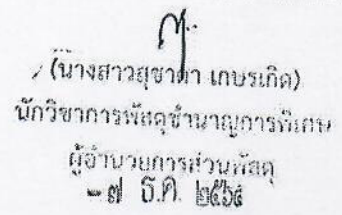 (นางสาวสุชาดา เกษรเกิด)
นักวิชาการพัสดุชำนาญการพิเศษ
ผู้อำนวยการส่วนพัสดุ
- ๗ ธ.ค. ๒๕๖๔